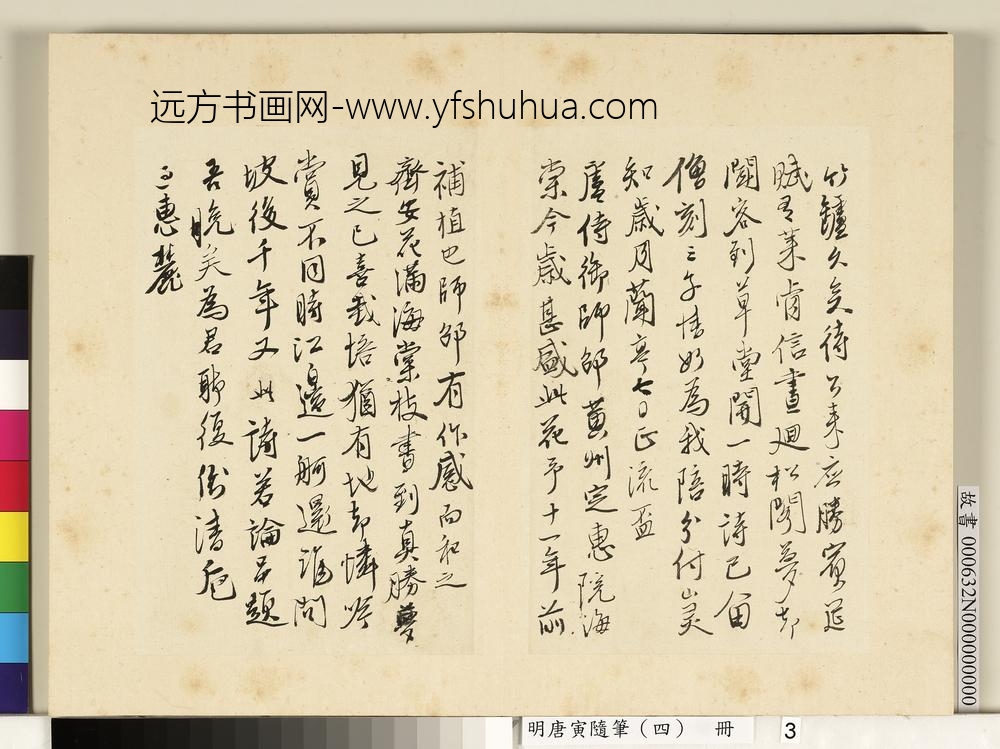 远方书画网-www.yfshuhua.com
竹罏久矣待公来應勝賓筵
賦有莱肯信晝廻松閣夢却
闘容到草堂開一時詩已留
僧刻三子情好為我陪分付山灵
知歲月蘭亭七日正流盃
唐侍御師邵黄州定惠院海
棠今歳甚盛此花予十一年前
補植也師邵有作感而和之
齊安花滿海棠枝書到真勝夢
見之已喜栽培猶有地却憐吟
賞不同時江邊一舸還誰問
坡後千年又此詩若論品題
吾晚矣為君聊復倒清巵
惠麓
故書 000632N000000000
明唐寅隨筆（四） 冊 3